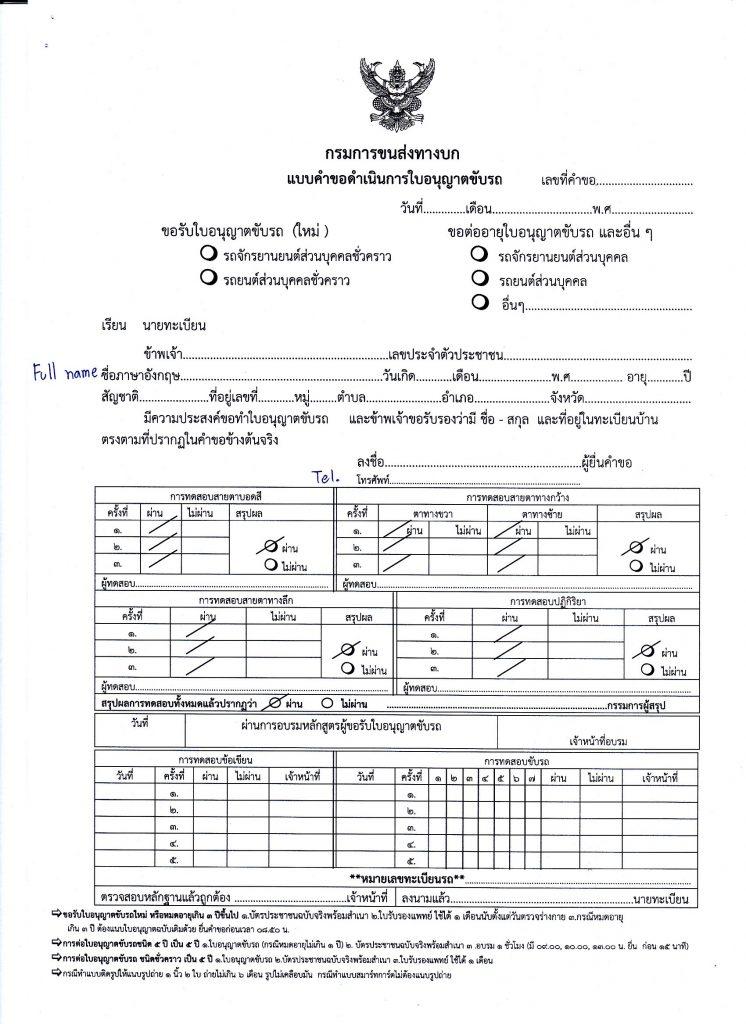 กรมการขนส่งทางบก
แบบคำขอดำเนินการใบอนุญาตขับรถ เลขที่คำขอ................................
วันที่..............เดือน.................................พ.ศ...........................
ขอรับใบอนุญาตขับรถ (ใหม่ ) ขอต่ออายุใบอนุญาตขับรถ และอื่น ๆ
รถจักรยานยนต์ส่วนบุคคลชั่วคราว รถจักรยานยนต์ส่วนบุคคล
รถยนต์ส่วนบุคคลชั่วคราว รถยนต์ส่วนบุคคล
อื่นๆ........................................................
เรียน นายทะเบียน
ข้าพเจ้า....................................................................เลขประจำตัวประชาชน..............................................................
Full name ชื่อภาษาอังกฤษ...................................................................วันเกิด............เดือน........................พ.ศ.................. อายุ............ปี
สัญชาติ.......................ที่อยู่เลขที่............หมู่.........ตำบล.........................อำเภอ.........................จังหวัด....................................
มีความประสงค์ขอทำใบอนุญาตขับรถ และข้าพเจ้าขอรับรองว่ามี ชื่อ - สกุล และที่อยู่ในทะเบียนบ้าน
ตรงตามที่ปรากฏในคำขอข้างต้นจริง
ลงชื่อ..................................................................ผู้ยื่นคำขอ
Tel. โทรศัพท์................................................................
การทดสอบสายตาบอดสี การทดสอบสายตาทางกว้าง
ครั้งที่ ผ่าน ไม่ผ่าน สรุปผล ครั้งที่ ตาทางขวา ตาทางซ้าย สรุปผล
๑. ๑. ผ่าน ไม่ผ่าน ผ่าน ไม่ผ่าน
๒. ผ่าน ๒. ผ่าน
๓. ไม่ผ่าน ๓. ไม่ผ่าน
ผู้ทดสอบ................................................................ ผู้ทดสอบ................................................................
การทดสอบสายตาทางลึก การทดสอบปฏิกิริยา
ครั้งที่ ผ่าน ไม่ผ่าน สรุปผล ครั้งที่ ผ่าน ไม่ผ่าน สรุปผล
๑. ๑.
๒. ผ่าน ๒. ผ่าน
๓. ไม่ผ่าน ๓. ไม่ผ่าน
ผู้ทดสอบ................................................................ ผู้ทดสอบ................................................................
สรุปผลการทดสอบทั้งหมดแล้วปรากฏว่า ผ่าน ไม่ผ่าน ................................................................กรรมการผู้สรุป
วันที่ ผ่านการอบรมหลักสูตรผู้ขอรับใบอนุญาตขับรถ
เจ้าหน้าที่อบรม
การทดสอบข้อเขียน การทดสอบขับรถ
วันที่ ครั้งที่ ผ่าน ไม่ผ่าน เจ้าหน้าที่ วันที่ ครั้งที่ ๑ ๒ ๓ ๔ ๕ ๖ ๗ ผ่าน ไม่ผ่าน เจ้าหน้าที่
๑. ๑.
๒. ๒.
๓. ๓.
๔. ๔.
๕. ๕.
**หมายเลขทะเบียนรถ**................................................................
ตรวจสอบหลักฐานแล้วถูกต้อง ......................................เจ้าหน้าที่ ลงนามแล้ว................................................................นายทะเบียน
⇨ขอรับใบอนุญาตขับรถใหม่ หรือหมดอายุเกิน ๓ ปีขึ้นไป ๑.บัตรประชาชนฉบับจริงพร้อมสำเนา ๒.ใบรับรองแพทย์ ใช้ได้ ๑ เดือนนับตั้งแต่วันตรวจร่างกาย ๓.กรณีหมดอายุ
เกิน ๓ ปี ต้องแนบใบอนุญาตฉบับเดิมด้วย ยื่นคำขอก่อนเวลา ๐๘.๕๐ น.
⇨การต่อใบอนุญาตขับรถชนิด ๕ ปี เป็น ๕ ปี ๑.ใบอนุญาตขับรถ (กรณีหมดอายุไม่เกิน ๑ ปี) ๒. บัตรประชาชนฉบับจริงพร้อมสำเนา ๓ .อบรม ๑ ชั่วโมง (มี ๐๙.๐๐, ๑๐.๐๐, ๑๓.๐๐ น. ยื่น ก่อน ๑๕ นาที)
⇨การต่อใบอนุญาตขับรถ ชนิดชั่วคราว เป็น ๕ ปี ๑.ใบอนุญาตขับรถ ๒.บัตรประชาชนฉบับจริงพร้อมสำเนา ๓.ใบรับรองแพทย์ ใช้ได้ ๑ เดือน
⇨กรณีทำแบบติดรูปให้แนบรูปถ่าย ๑ นิ้ว ๒ ใบ ถ่ายไม่เกิน ๖ เดือน รูปไม่เคลือบมัน กรณีทำแบบสมาร์ทการ์ดไม่ต้องแนบรูปถ่าย